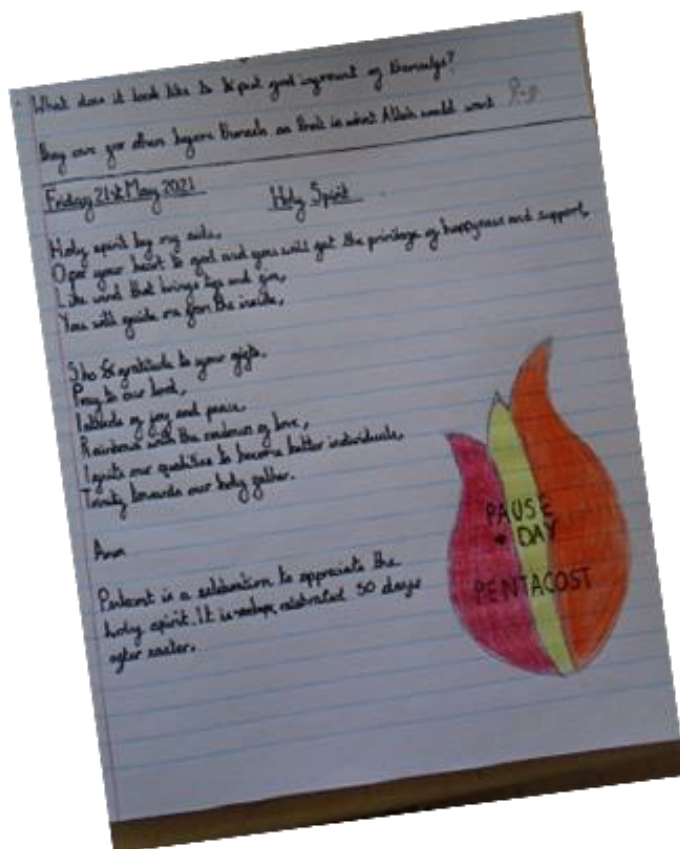 What does it look like to put god infront of themselfs?
they care for others before themselfs as that is what Allah would want
Friday 21st May 2021 Holy Spirit
Holy spirit by my side,
Open your heart to god and you will get the privilage of happyness and support,
Like wind that brings and
You will guide me from the inside,
Sho gratitude to your gifts.
Pray to our lord,
of joy and peace,
Rainbows with the of love,
Ignite our qualities to become better individuals,
Trinity towards our holy father.
Pentecost is a celebration to appreciate the
holy spirit. It is celebrated 50 days
after easter.
PAUSE
DAY
PENTACOST